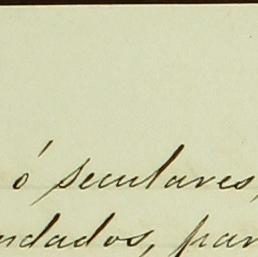 ó seculares,
ndados, par